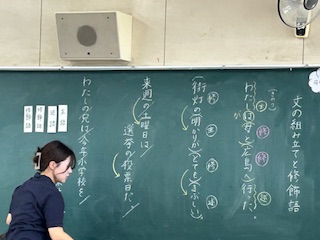 文の組み立てと修飾語
(きのう)
主 修 修 述
わたしは母と広島へ行った。
修 主 修 述
(街灯の)明かりが(とても)まぶしい。
来週の土曜日は/
選挙の投票日だ。/
わたしの兄は/今年小学校を/
主語
述語
修飾語